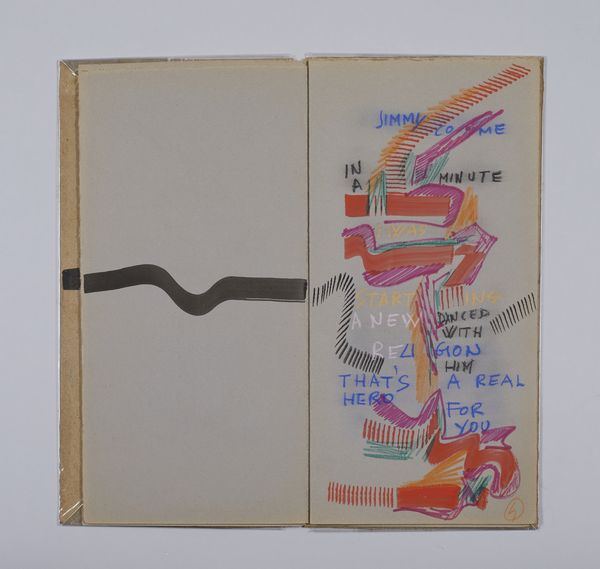 JIMMY COME
IN MINUTE
A
I WAS
STARTING
A NEW DANCED
WITH
RELIGION
HIM
THAT'S A REAL
HERO FOR
YOU